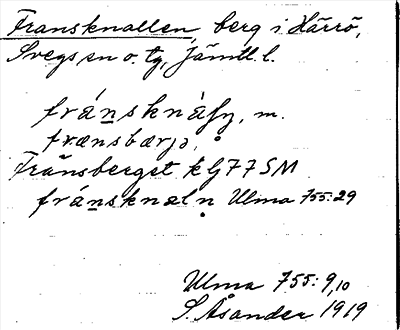 Fransknallen, berg i Härrö,
Svegs sn o. tg, Jämtl. l.
fránsknàļņ, m.
frænsbærjə,
Fränsberget kG77SM
fránsknæln Ulma 755:29
Ulma 755: 9,10
S. Åsander 1919